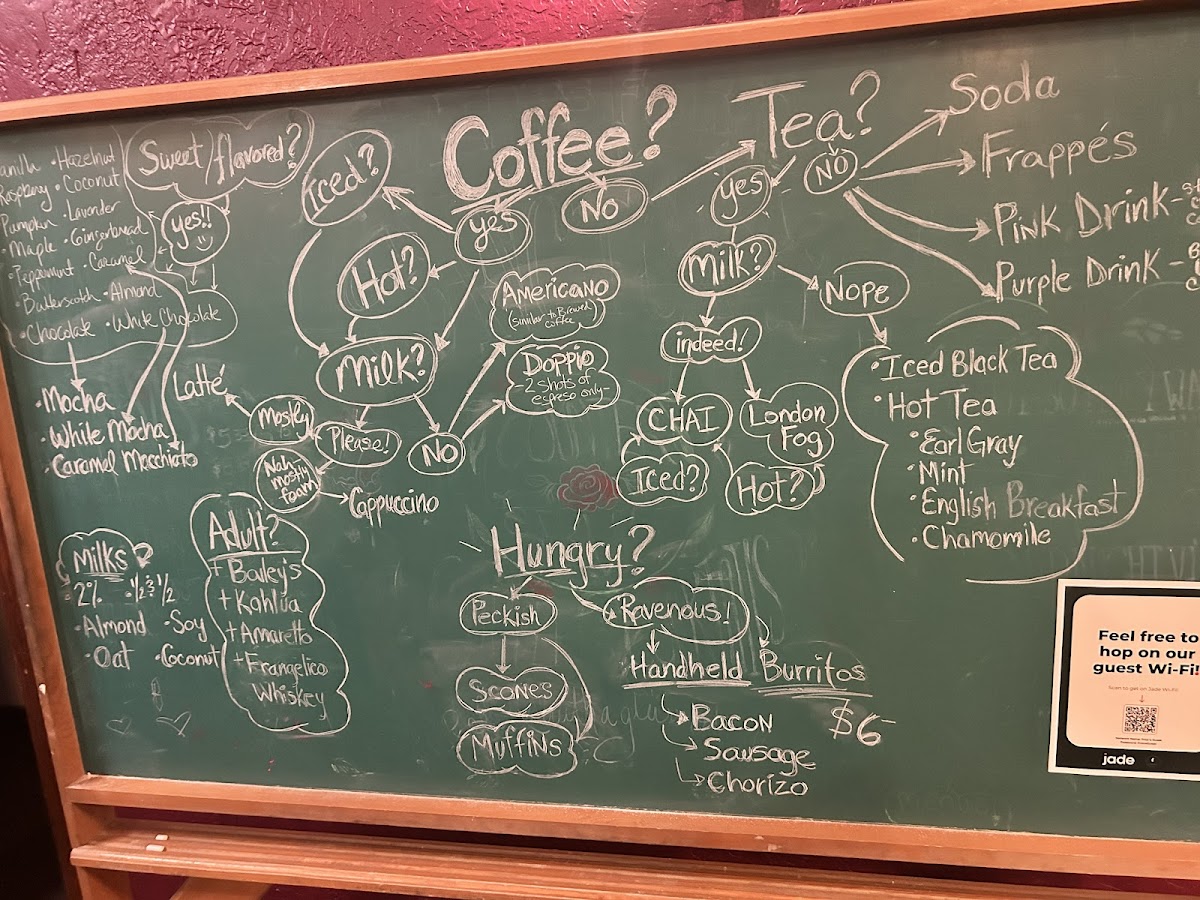 Coffee?
Tea?
Soda
Frappés
Pink Drink -
Purple Drink -
NO
yes
Milk?
Nope
indeed!
CHAI
London
Fog
Iced?
Hot?
• Iced Black Tea
• Hot Tea
• Earl Gray
• Mint
• English Breakfast
• Chamomile
NO
yes
Iced?
Hot?
Milk?
Americano
(similar to Brewed
coffee)
Doppio
- 2 shots of
espreso only -
NO
Please!
mostly
Latté
Nah
mostly
foam
Cappuccino
Sweet/flavored?
yes!!
• Hazelnut
Raspberry • Coconut
Pumpkin • Lavender
• Maple • Gingerbread
• Peppermint • Caramel
• Butterscotch • Almond
• Chocolate • White Chocolate
• Mocha
• White Mocha
• Caramel Macchiato
Milks
• 2% • ½ & ½
• Almond • Soy
• Oat • Coconut
Adult?
+ Bailey's
+ Kahlua
+ Amaretto
+ Frangelico
Whiskey
Hungry?
Peckish
Scones
Muffins
Ravenous!
Handheld Burritos
Bacon
Sausage
Chorizo
$6-
Feel free to
hop on our
guest Wi-Fi!
Scan to get on Jade Wi-Fi!
jade